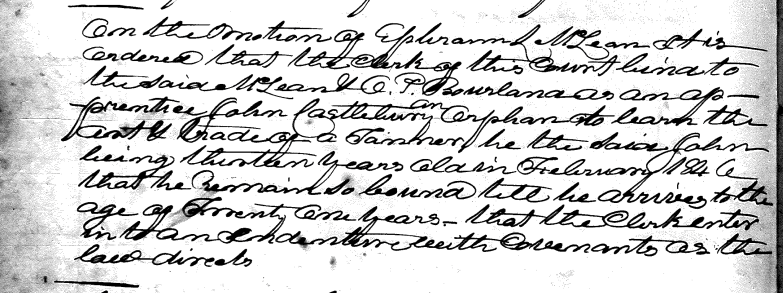 On the motion of Ephraim L McLean it is
ordered that the clerk of this Court bind to
the said McLean & O. T. Bourland as an ap-
prentice John Castlebury an orphan to learn the
art & trade of a Tanner, he the said John
being thirteen years old in February 1846
that he remain so bound till he arrives to the
age of Twenty One years - that the Clerk enter
into an indenture with Covenants as the
law directs